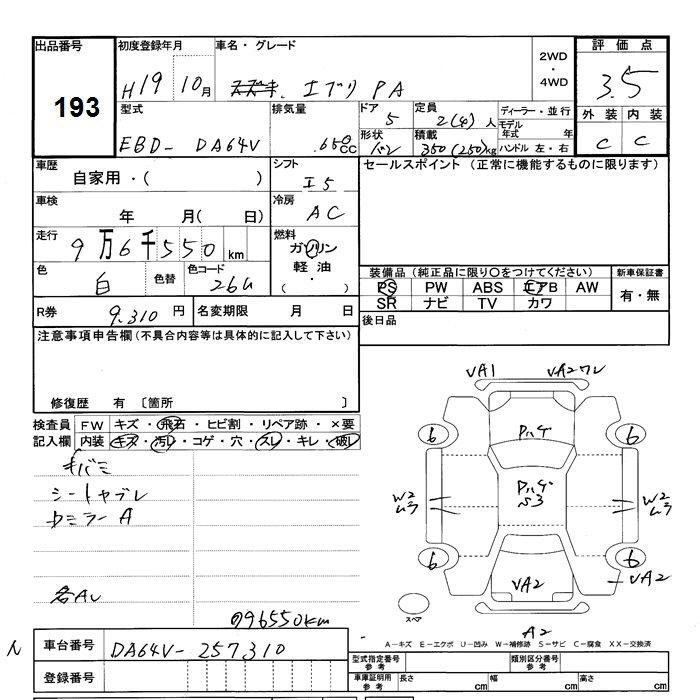 出品番号
193
初度登録年月
H19 10月
車名・グレード
スズキ. エブリ PA
2WD
・
4WD
評価点
3.5
型式
EBD- DA64V
排気量
.650cc
ドア
5
形状
バン
定員
2(4)人
積載
350(250)kg
ディーラー・並行
モデル
年式 年
ハンドル 左・右
外装 内装
C C
車歴
自家用・( )
シフト
I5
セールスポイント (正常に機能するものに限ります)
車検
年 月( 日)
冷房
AC
走行
9万6千550km
燃料
ガソリン
軽油・
( )
色
白
色替
色コード
26U
装備品(純正品に限り〇をつけてください)
新車保証書
PS PW ABS エアB AW
SR ナビ TV カワ
有・無
R券
9.310円
名変期限 月 日
後日品
注意事項申告欄(不具合内容等は具体的に記入して下さい)
修復歴 有 〔箇所 〕
検査員
記入欄
FW キズ・飛石・ヒビ割・リペア跡・×要
内装 キズ・汚レ・コゲ・穴・スレ・キレ・破レ
シートヤブレ
カミラーA
各AU
096550km
VA1 VA2ワレ
Pハゲ
6 6
W2
ムラ
Pハゲ
S3
W2
ムラ
6 6
VA2
VA2
スペア
A2
A-キズ E-エクボ U-凹み W-補修跡 S-サビ C-腐食 XX-交換済
車台番号
DA64V-257310
登録番号
型式指定番号
参考
類別区分番号
参考
車庫証明用
参考
長さ cm
幅 cm
高さ cm